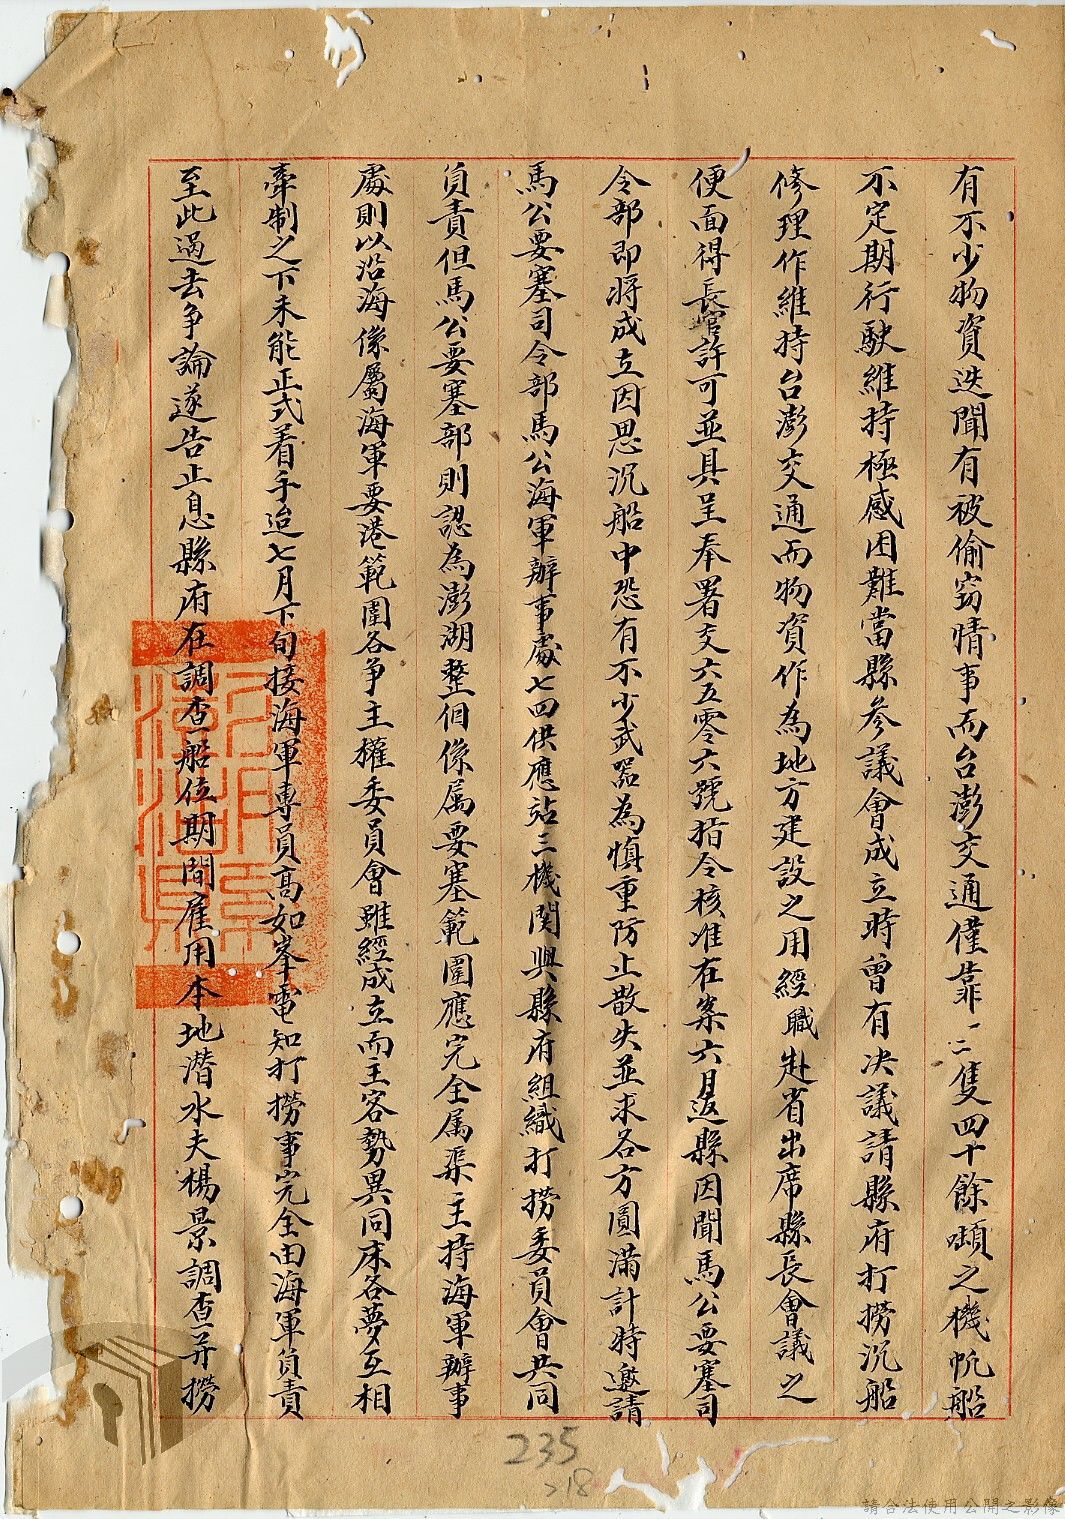 有不少物資迭聞有被偷竊情事而台澎交通僅靠一二隻四十餘噸之機帆船
不定期行駛維持極感困難當縣參議會成立時曾有決議請縣府打撈沉船
修理作維持台澎交通而物資作為地方建設之用經職赴省出席縣長會議之
便面得長官許可並具呈奉署交六五零六號指令核准在案六月返縣因聞馬公要塞司
令部即將成立因思沉船中恐有不少武器為慎重防止散失並求各方圓滿計特邀請
馬公要塞司令部馬公海軍辦事處七四供應站三機関與縣府組織打撈委員會共同
負責但馬公要塞部則認為澎湖整個係属要塞範圍應完全属渠主持海軍辦事
處則以沿海係屬海軍要港範圍各争主權委員會雖經成立而主客勢異同床各夢互相
牽制之下未能正式着手迨七月下旬接海軍專員高如峯電知打撈事完全由海軍負責
至此過去争論遂告止息縣府在調查船位期間雇用本地潛水夫楊景調查并撈
235
218
請合法使用公開之影像